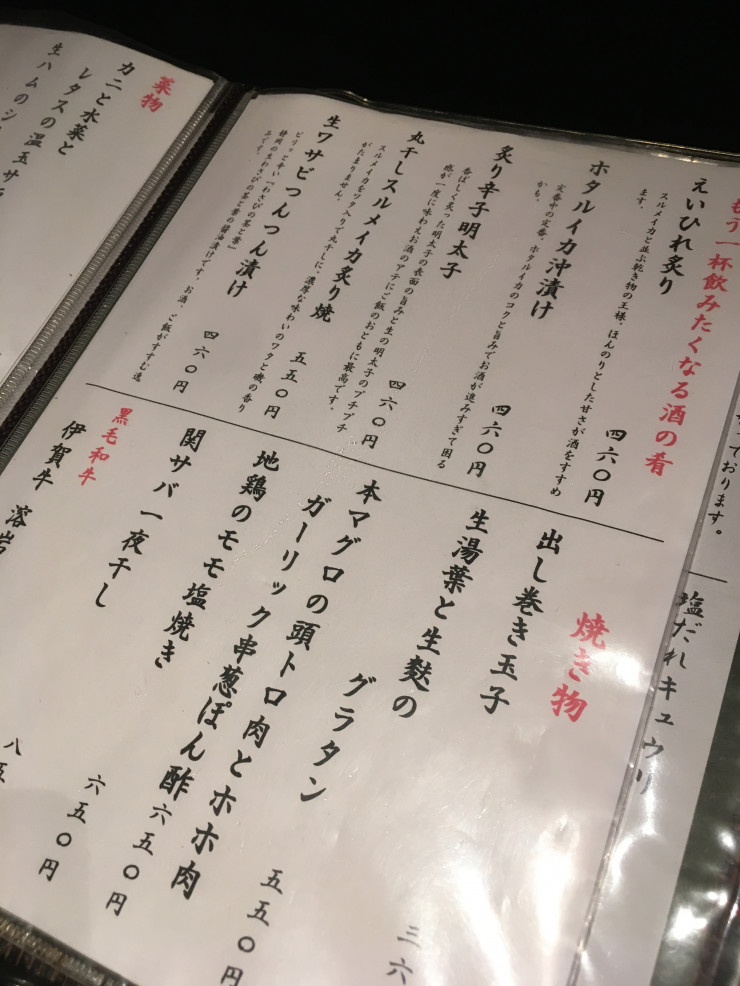 っております。
塩だれキュウリ
もう一杯飲みたくなる酒の肴
えいひれ炙り
スルメイカと並ぶ乾き物の王様。ほんのりとした甘さが酒をすすめ
ます。
四六〇円
ホタルイカ沖漬け
定番中の定番、ホタルイカのコクと旨みでお酒が進みすぎて困る
かも。
四六〇円
炙り辛子明太子
香ばしく炙った明太子の表面の旨みと生の明太子のプチプチ
感が一度に味わえお酒のアテにご飯のおともに最高です。
四六〇円
丸干しスルメイカ炙り焼
スルメイカをワタ入りで丸干しに。濃厚な味わいのワタと磯の香り
がたまりません。
五五〇円
生ワサビつんつん漬け
ピリッと辛い「わさびの茎と葉」
静岡の生わさびの茎と葉の醤油漬けです。お酒、ご飯がすすむ逸
品です。
四六〇円
焼き物
出し巻き玉子
生湯葉と生麩の
グラタン
三六
本マグロの頭トロ肉とホホ肉
ガーリック串葱ぽん酢
五五〇円
地鶏のモモ塩焼き
六五〇円
関サバ一夜干し
六五〇円
黒毛和牛
伊賀牛 溶岩
八五
菜物
カニと水菜と
レタスの温玉サ
生ハムのシ